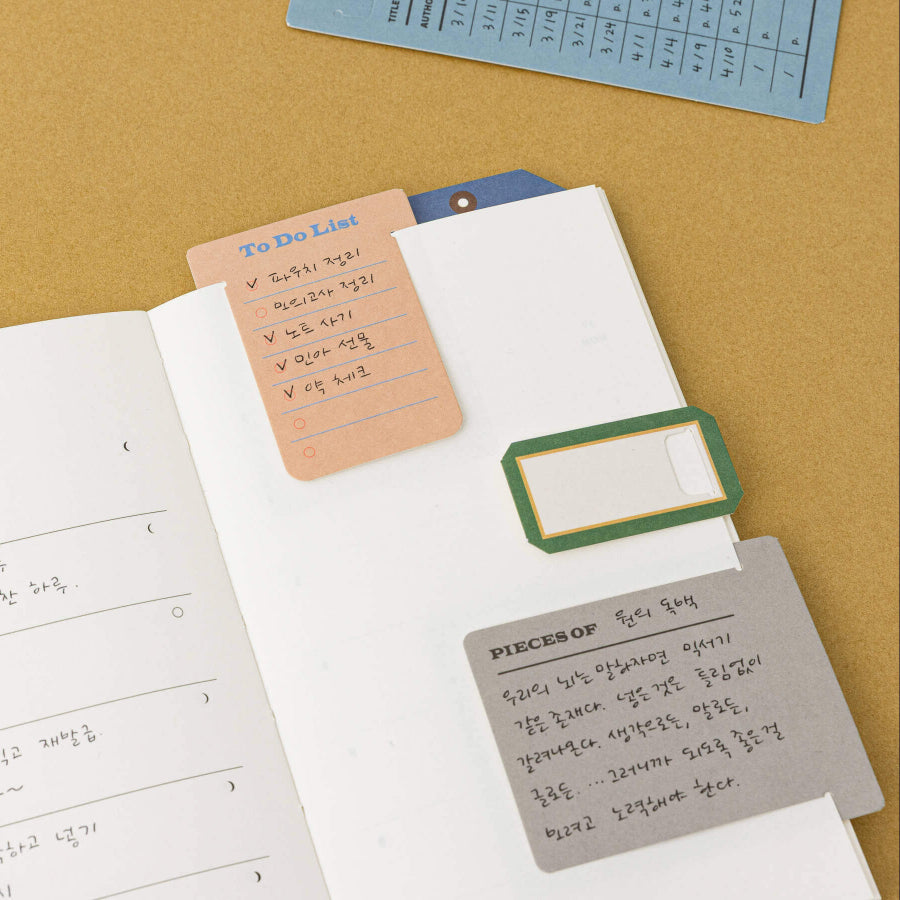 TITLE
AUTHO
3/10
3/11
3/15
3/19
3/21
3/24
4/1 p.
4/4 p. 4
4/9 p. 4
4/10 p. 52
/ p.
/ p.
To Do List
파우치 정리
모의고사 정리
노트 사기
민아 선물
약 체크
PIECES OF 원의 독백
우리의 뇌는 말하자면 믹서기
같은 존재다. 넣은 것은 틀림없이
갈려나온다. 생각으로든, 말로든,
글로든. ...그러니까 되도록 좋은걸
보려고 노력해야 한다.
찬 하루.
재발급.
하고 넣기